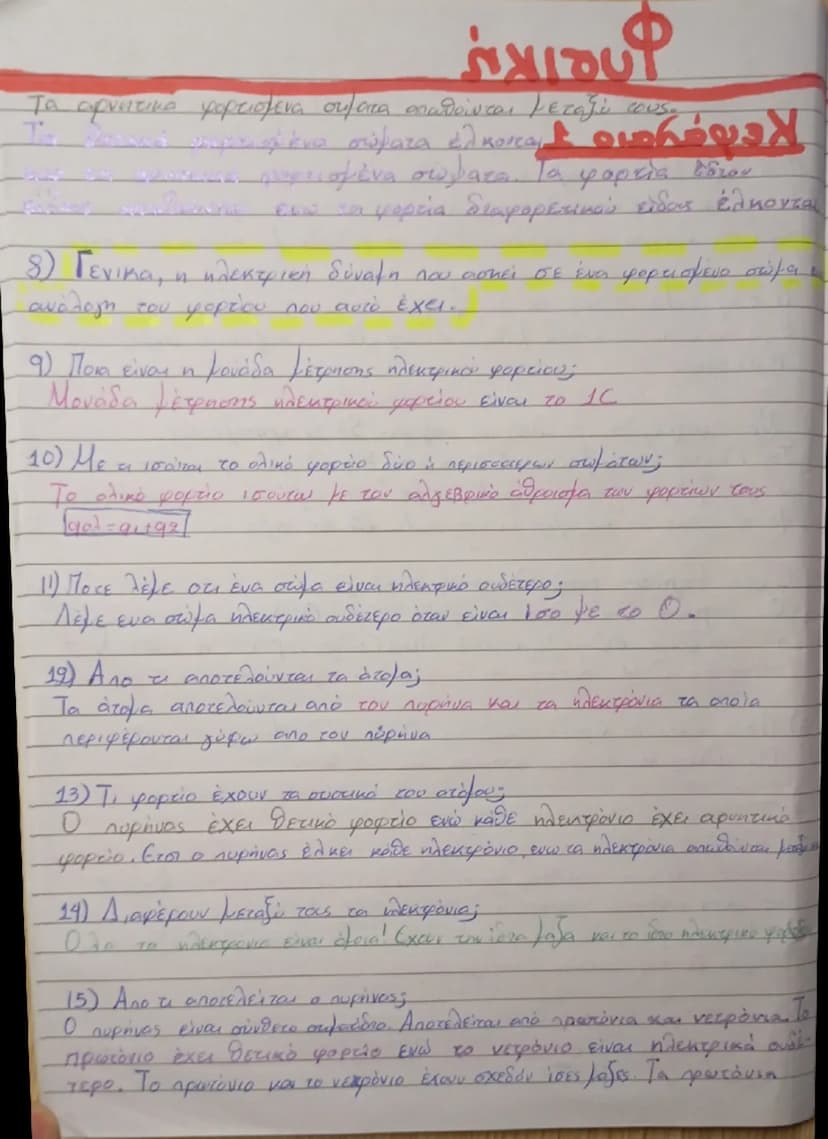 Φυσική
Τα αρνητικα φορτισμενα σωματα απωθούνται μεταξύ τους.
Κεφάλαιο 1
Τα θετικά φορτισμένα σώματα έλκονται
φορτισμένα σώματα. Τα φορτία ίδιου
είδους ενω τα φορτία διαφορετικού είδους έλκονται
8) Γενικα, η ηλεκτρική δύναμη που ασκεί σε ένα φορτισμενο σώμα
ανάλογη του φορτίου που αυτό έχει.
9) Ποια είναι η μονάδα μέτρησης ηλεκτρικού φορτίου;
Μονάδα μέτρησης ηλεκτρικού φορτίου είναι το 1C
10) Με τι ισούται το ολικό φορτίο δύο ή περισσότερων σωμάτων;
Το ολικό φορτίο ισουται με τον αλγεβρικό άθροισμα των φορτίων τους
qολ=q1+q2
11) Ποτε λέμε οτι ένα σώμα είναι ηλεκτρικό ουδέτερο;
Λέμε ενα σώμα ηλεκτρικό ουδέτερο όταν είναι ίσο με το 0.
12) Απο τι αποτελούνται τα άτομα;
Τα άτομα αποτελούνται από τον πυρήνα και τα ηλεκτρόνια τα οποία
περιφέρονται γύρω απο τον πύρηνα
13) Τι φορτίο έχουν τα συστικά του ατόμου;
Ο πυρήνας έχει θετικό φορτίο ενώ κάθε ηλεκτρόνιο έχει αρνητικό
φορτίο. Ετσι ο πυρήνας έλκει κάθε ηλεκτρόνιο, ενω τα ηλεκτρόνια απωθούνται μεταξύ
14) Διαφέρουν μεταξύ τους τα ηλεκτρόνια;
Ολα τα ηλεκτρόνια είναι όμοια! Εχουν την ίδια μάζα και το ίδιο ηλεκτρικο φορτίο
15) Απο τι αποτελείται ο πυρήνας;
Ο πυρήνας είναι σύνθετο σωματίδιο. Αποτελείται από πρωτόνια και νετρόνια. Το
πρωτόνιο έχει θετικό φορτίο ενώ το νετρόνιο είναι ηλεκτρικά ουδέ-
τερο. Το πρωτόνιο και το νετρόνιο έχουν σχεδόν ίσες μάζες. Τα πρωτόνια